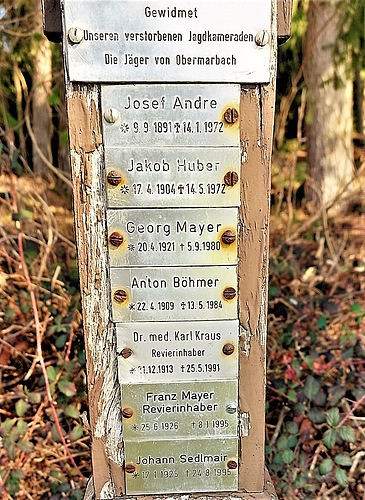 Gewidmet
Unseren verstorbenen Jagdkameraden
Die Jäger von Obermarbach
Josef Andre
* 9. 9. 1891 ✝ 14. 1. 1972
Jakob Huber
* 17. 4. 1904 ✝ 14. 5. 1972
Georg Mayer
* 20.4. 1921 ✝ 5.9. 1980
Anton Böhmer
* 22.4. 1909 ✝ 13.5. 1984
Dr. med. Karl Kraus
Revierinhaber
✝ 25.5.1991
Franz Mayer
Revierinhaber
* 25.6.1926 ✝ 8.1.1995
Johann Sedlmair